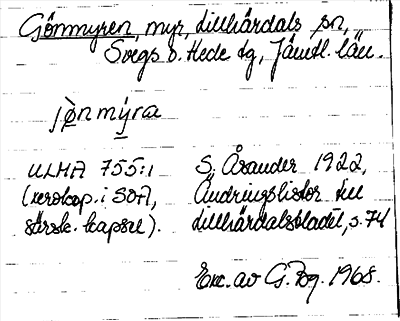 Gönmyren, myr, Lillhärdals sn,
Svegs o. Hede tg, Jämtl. län.
jøn mýra
ULMA 755:1
(xerokop. i SOA,
särsk. kapsel).
S. Åsander 1922,
Ändringslistor till
Lillhärdalsbladet, s. 74
Exc. av G. Bg. 1968.